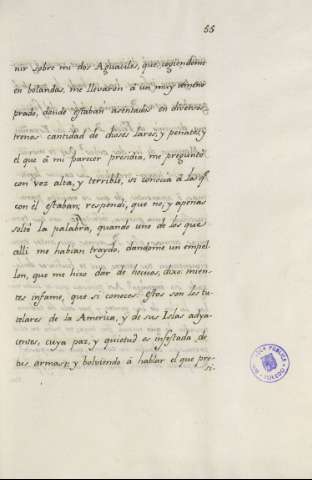 55
nir sobre mi dos Aguaciles, que cogiendome
en bolandas, me llevaron à un muy ameno
prado, donde estaban asentados en diversos
tronos cantidad de dioses lares, y penates, y
el que à mi parecer presidia, me preguntò
con voz alta, y terrible, si conocia à los q.e
con èl estaban; respondì, que no, y apenas
soltè la palabra, quando uno de los que
alli me habian traydo, dandome un empel-
lon, que me hizo dar de hocicos, dixo: mien-
tes infame, que si conoces: estos son los tu-
telares de la America, y de sus Islas adya-
centes, cuya paz, y quietud es infestada de
tus armas; y bolviendo à hablar el que pre-
si-
PUBLICA
TOLEDO